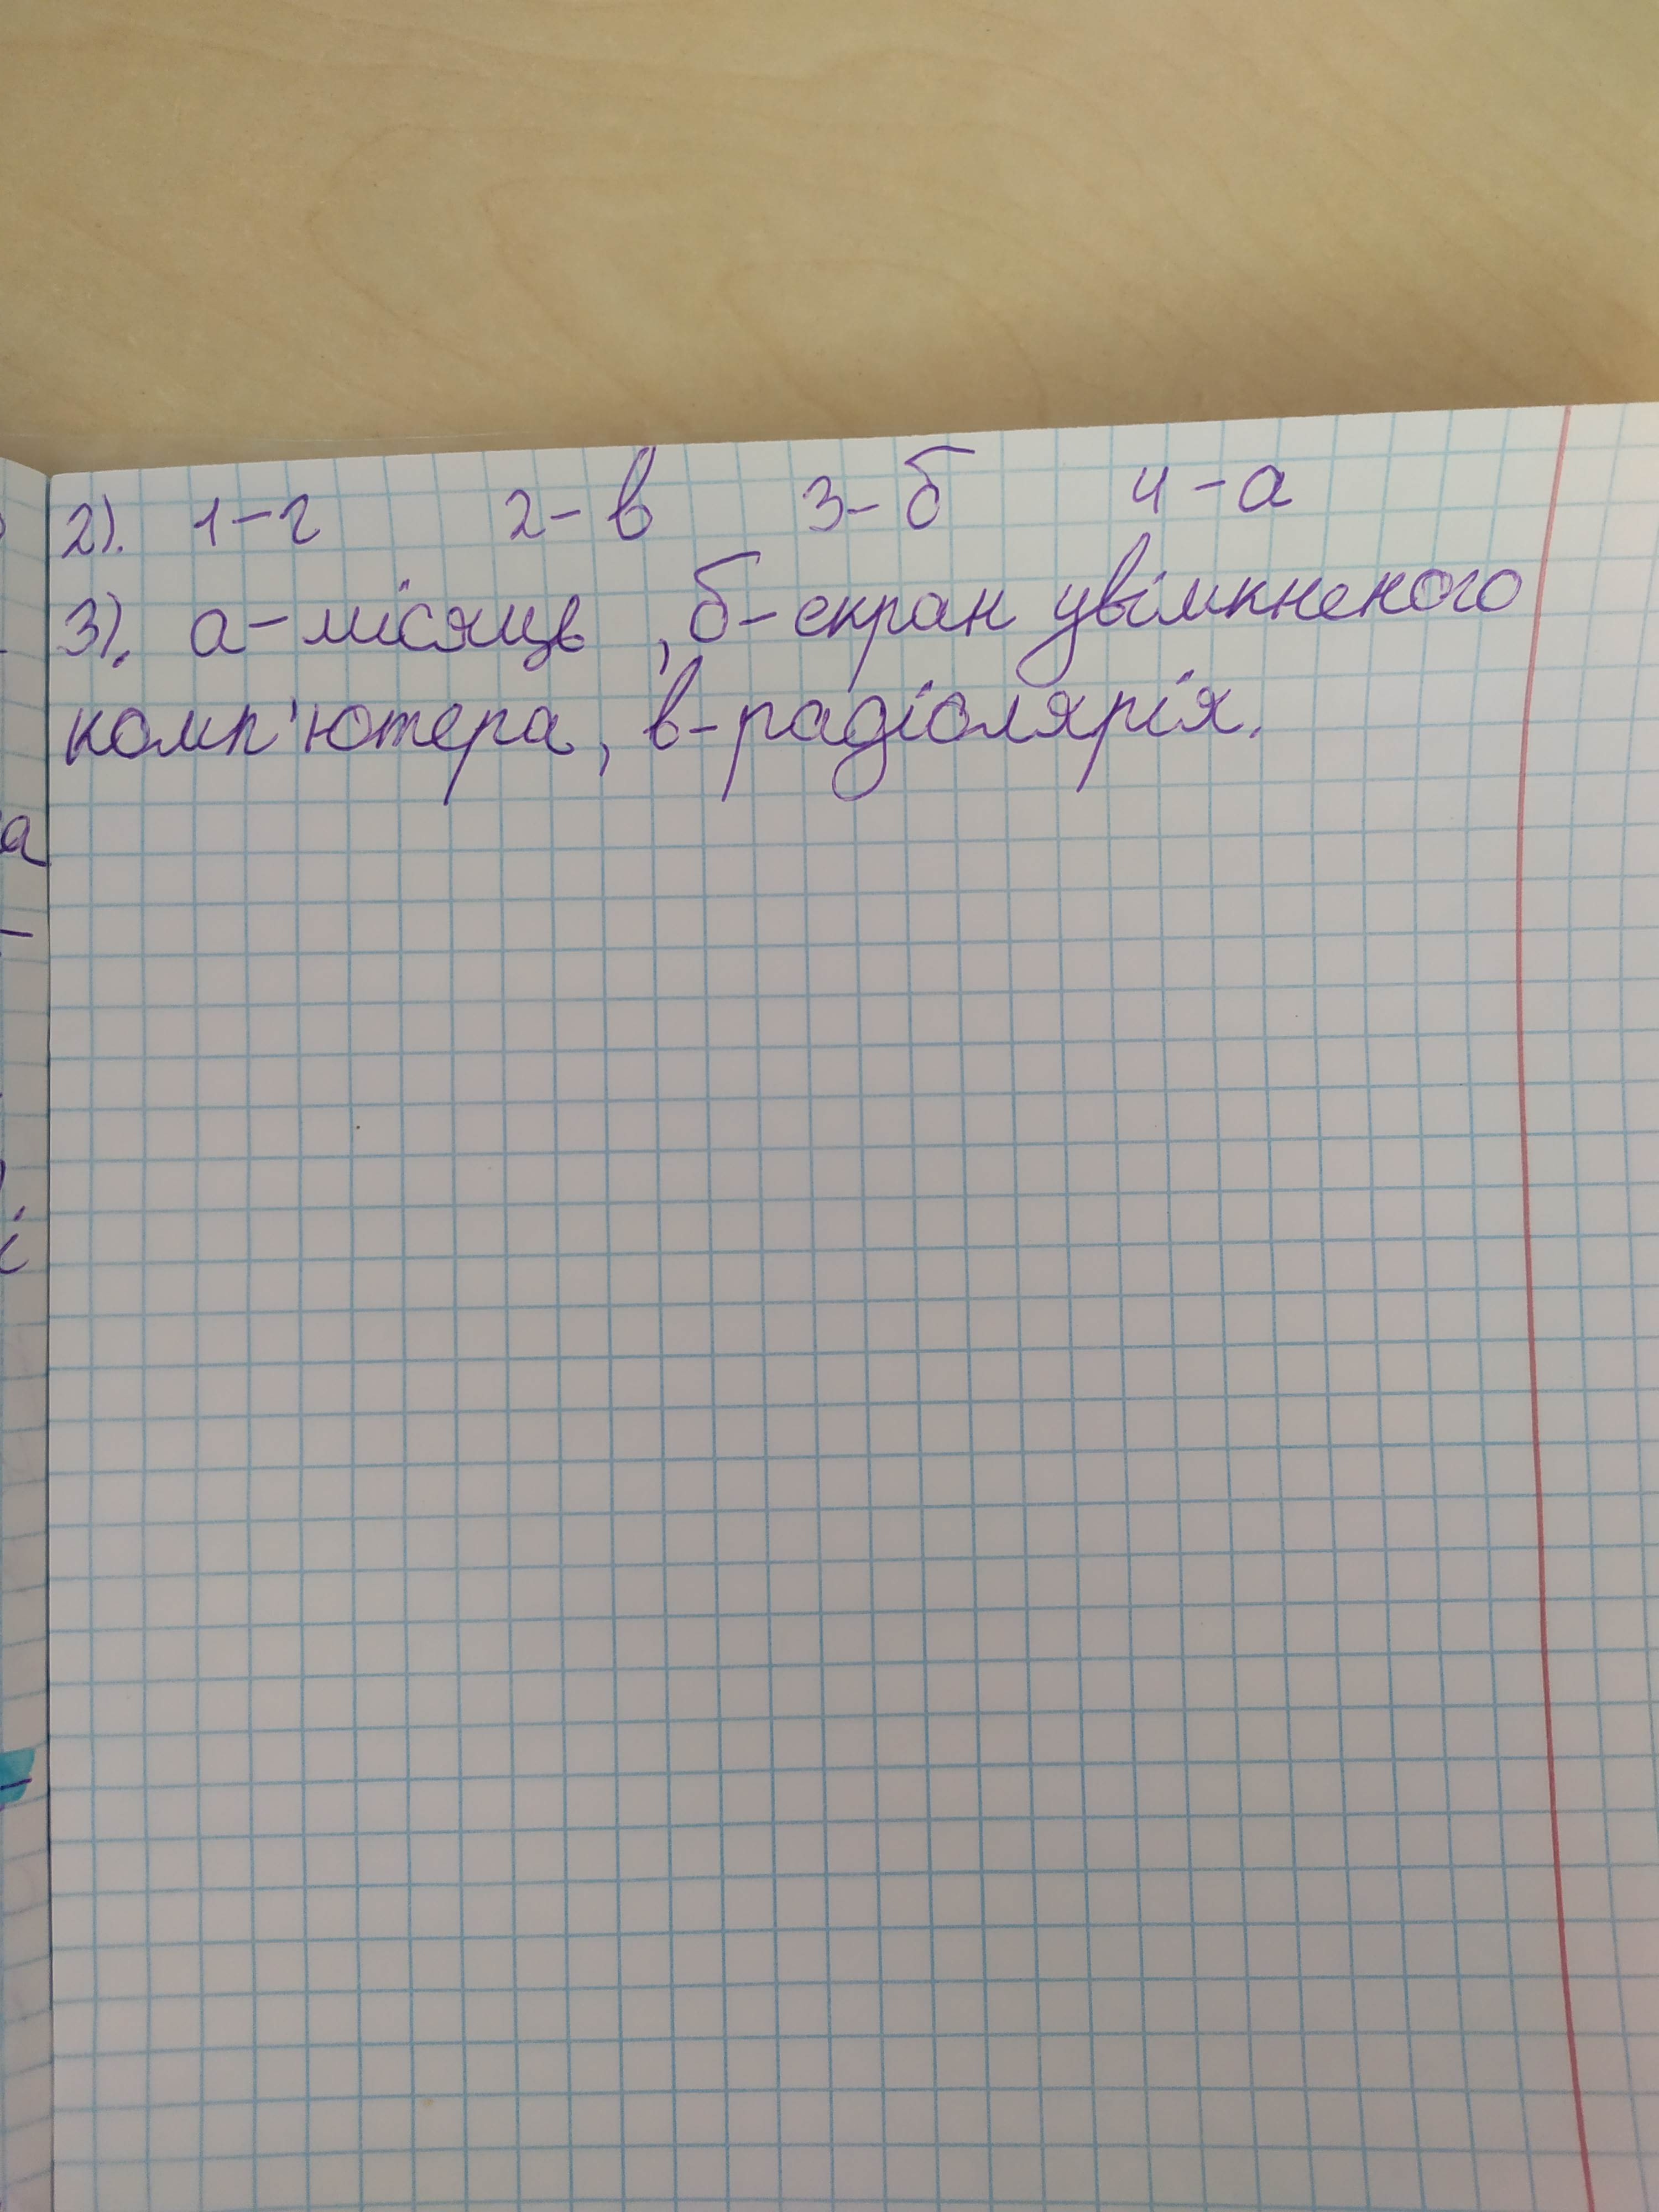 2). 1-г 2-в 3-б 4-а
3). а-місяць, б-екран увімкненого
комп'ютера, в-радіолярія.